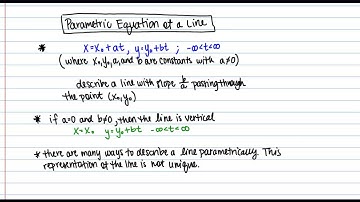 Parametric Equation of a Line
* x=x₀+at, y=y₀+bt ; -∞<t<∞
(where x₀,y₀,a,and b are constants with a≠0)
describe a line with slope b/a passing through
the point (x₀,y₀)
* if a=0 and b≠0, then the line is vertical
x=x₀ y=y₀+bt -∞<t<∞
* there are many ways to describe a line parametrically. This
representation of the line is not unique.